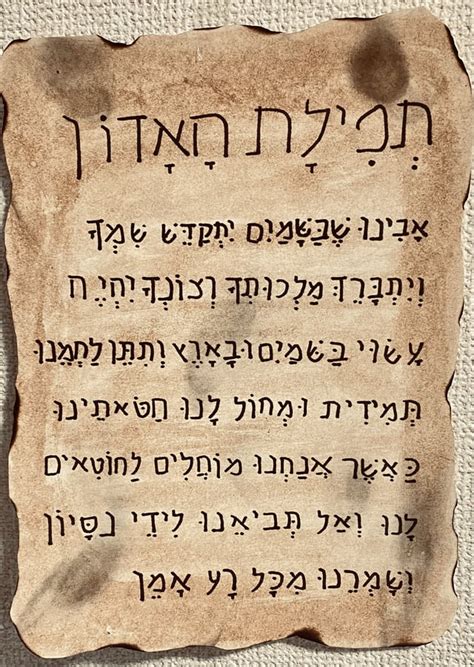 תְּפִילָת הָאָדוֹן
אָבִינוּ שֶׁבַּשָּׁמַיִם יִתְקַדֵּשׁ שִׁמְךָ
וְיִתְבָּרֵךְ מַלְכוּתְךָ רְצוֹנְךָ יִהְיֶה
עָשׂוּי בַּשָּׁמַיִם וּבָאָרֶץ וְתִתֵּן לַחְמֵנוּ
תְּמִידִית וּמְחוֹל לָנוּ חַטֹּאתֵינוּ
כַּאֲשֶׁר אֲנַחְנוּ מוֹחֲלִים לַחוֹטְאִים
לָנוּ וְאַל תְּבִיאֵנוּ לִידֵי נִסָּיוֹן
וְשָׁמְרֵנוּ מִכָּל רָע אָמֵן